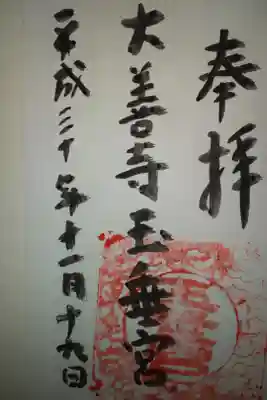 奉拝
大善寺玉垂宮
平成二十年十一月十九日